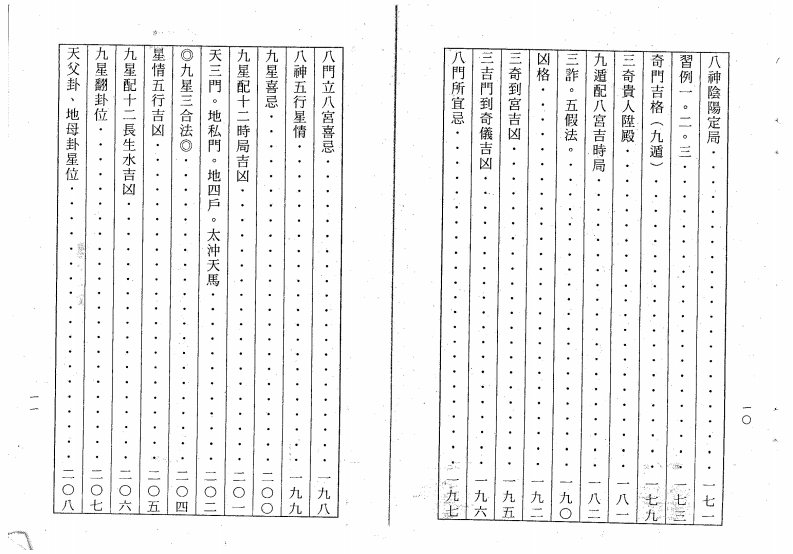 八神陰陽定局・・・・・・・・・・・・・・・・・・・・・一七一
習例一。二。三・・・・・・・・・・・・・・・・・・・・一七三
奇門吉格（九遁）・・・・・・・・・・・・・・・・・・・・一七九
三奇貴人陞殿・・・・・・・・・・・・・・・・・・・・・一八一
九遁配八宮吉時局・・・・・・・・・・・・・・・・・・・・一八二
三詐。五假法。・・・・・・・・・・・・・・・・・・・・・一九〇
凶格・・・・・・・・・・・・・・・・・・・・・・・・・一九二
三奇到宮吉凶・・・・・・・・・・・・・・・・・・・・・一九五
三吉門到奇儀吉凶・・・・・・・・・・・・・・・・・・・・一九六
八門所宜忌・・・・・・・・・・・・・・・・・・・・・・一九七
一〇
八門立八宮喜忌・・・・・・・・・・・・・・・・・・・・・一九八
八神五行星情・・・・・・・・・・・・・・・・・・・・・一九九
九星喜忌・・・・・・・・・・・・・・・・・・・・・・・二〇〇
九星配十二時局吉凶・・・・・・・・・・・・・・・・・・・二〇一
天三門。地私門。地四戶。太沖天馬・・・・・・・・・・・・二〇二
◎九星三合法◎・・・・・・・・・・・・・・・・・・・・・二〇四
星情五行吉凶・・・・・・・・・・・・・・・・・・・・・二〇五
九星配十二長生水吉凶・・・・・・・・・・・・・・・・・・二〇六
九星翻卦位・・・・・・・・・・・・・・・・・・・・・・二〇七
天父卦、地母卦星位・・・・・・・・・・・・・・・・・・・二〇八
一一